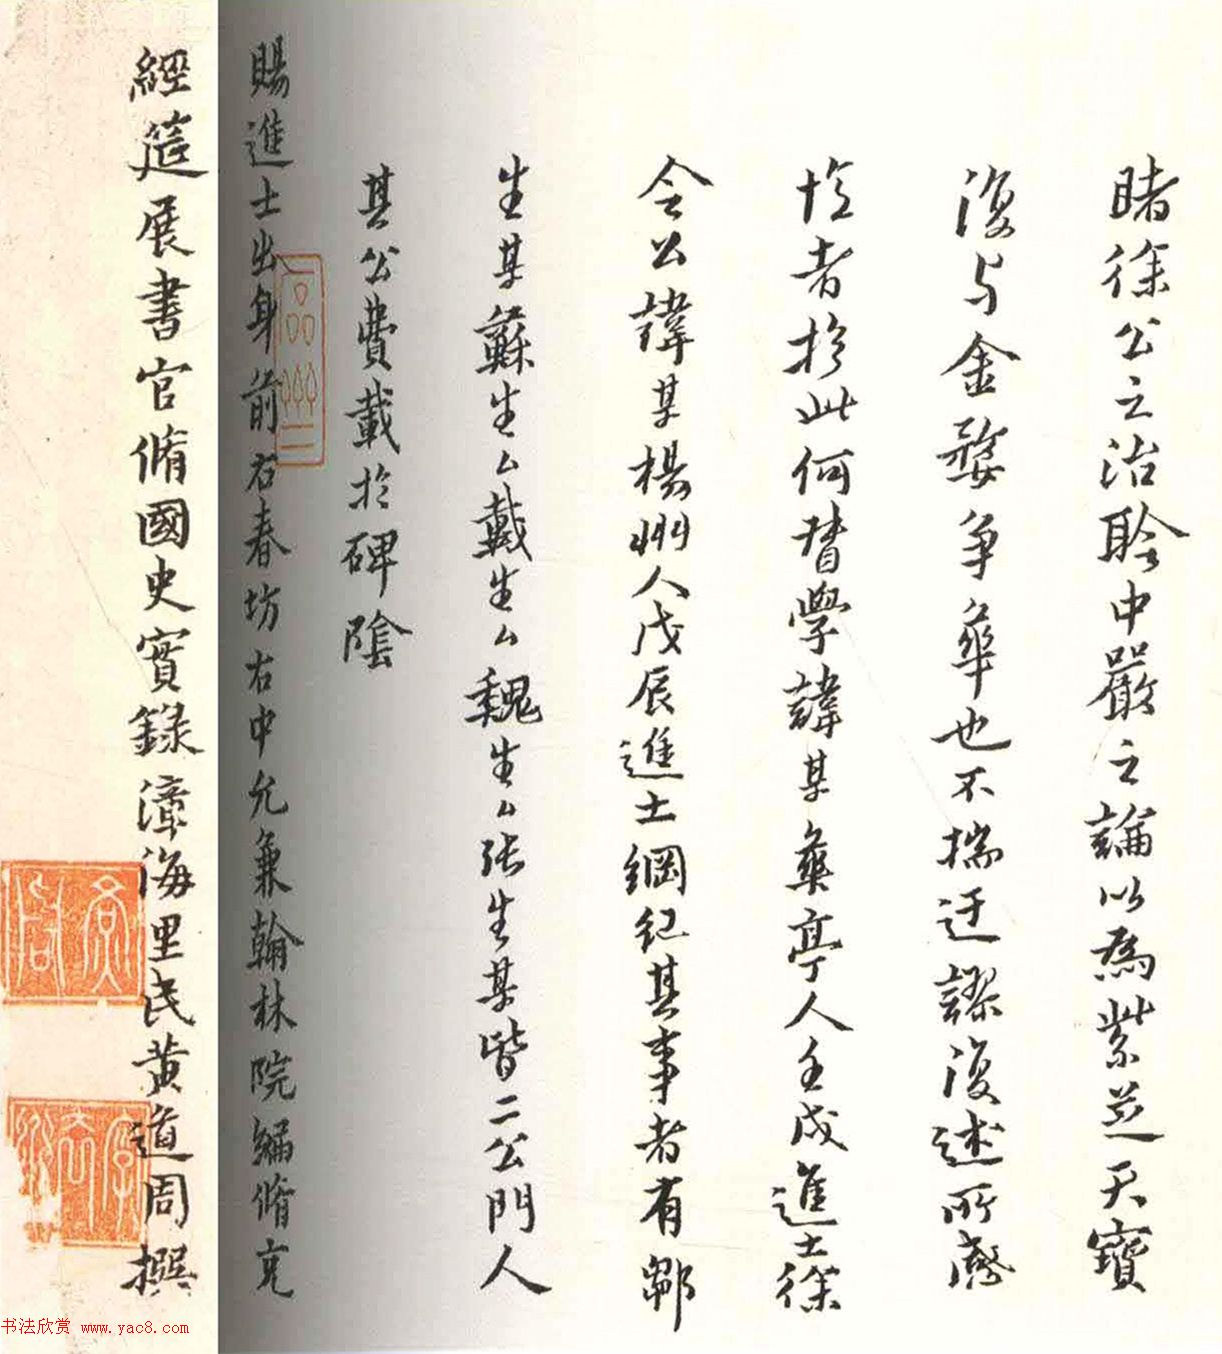 睹徐公之治聆中嚴之論以為紫芝天寶
復与金婺爭華也不揣迂謬復述所
者於此何督學諱某彝亭人壬戌進士徐
令公諱某楊州人戊辰進士綱紀其事者有鄒
生某蘇生厶戴生厶魏生厶張生某皆二公門人
其公費載於碑陰
賜進士出身前右春坊右中允兼翰林院編脩充
經筵展書官脩國史實錄漳海里民黃道周撰
书法欣赏 www.yac8.com